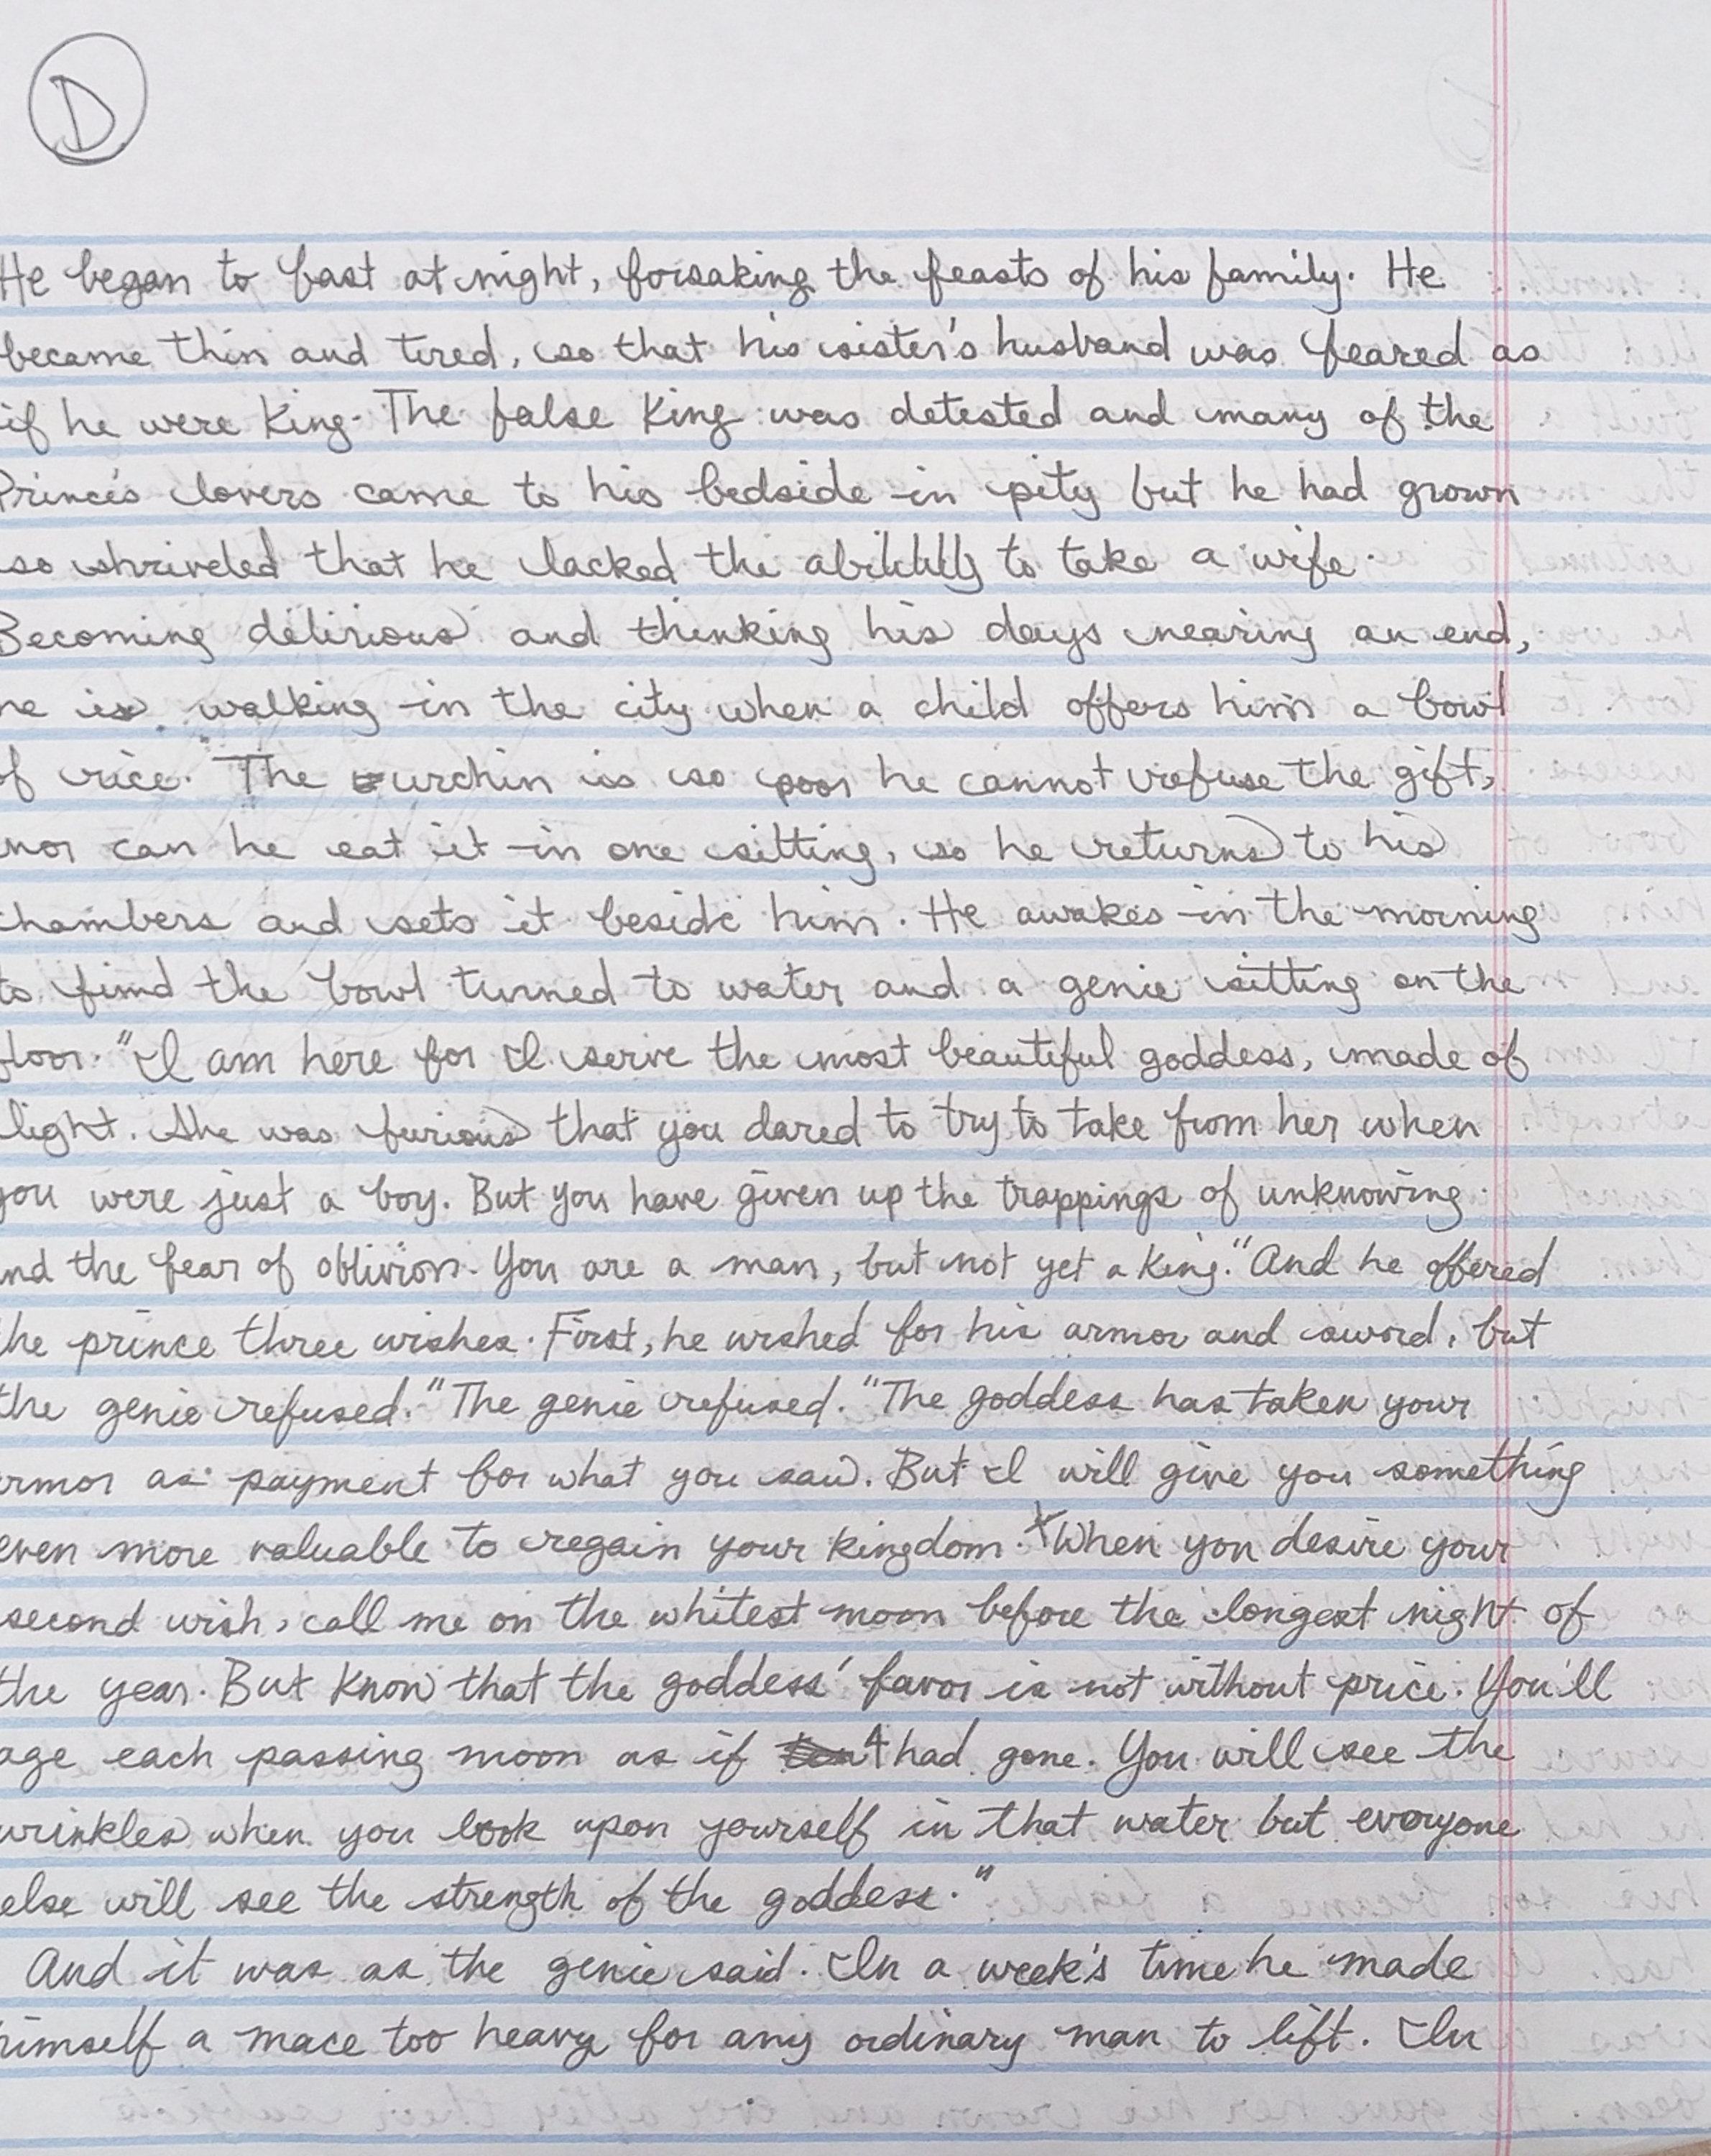 D
He began to fast at night, forsaking the feasts of his family. He
became thin and tired, so that his sister's husband was feared as
if he were King. The false King was detested and many of the
Prince's lovers came to his bedside in pity but he had grown
so shriveled that he lacked the ability to take a wife.
Becoming delirious and thinking his days nearing an end,
he is walking in the city when a child offers him a bowl
of rice. The urchin is so poor he cannot refuse the gift,
nor can he eat it in one sitting, so he returns to his
chambers and sets it beside him. He awakes in the morning
to find the bowl turned to water and a genie sitting on the
floor. "I am here for I serve the most beautiful goddess, made of
light. She was furious that you dared to try to take from her when
you were just a boy. But you have given up the trappings of unknowing
and the fear of oblivion. You are a man, but not yet a King." And he offered
the prince three wishes. First, he wished for his armor and sword, but
the genie refused." The genie refused. "The goddess has taken your
armor as payment for what you saw. But I will give you something
even more valuable to regain your kingdom. When you desire your
second wish, call me on the whitest moon before the longest night of
the year. But Know that the goddess' favor is not without price. You'll
age each passing moon as if 4 had gone. You will see the
wrinkles when you look upon yourself in that water but everyone
else will see the strength of the goddess."
And it was as the genie said. In a week's time he made
himself a mace too heavy for any ordinary man to lift. In